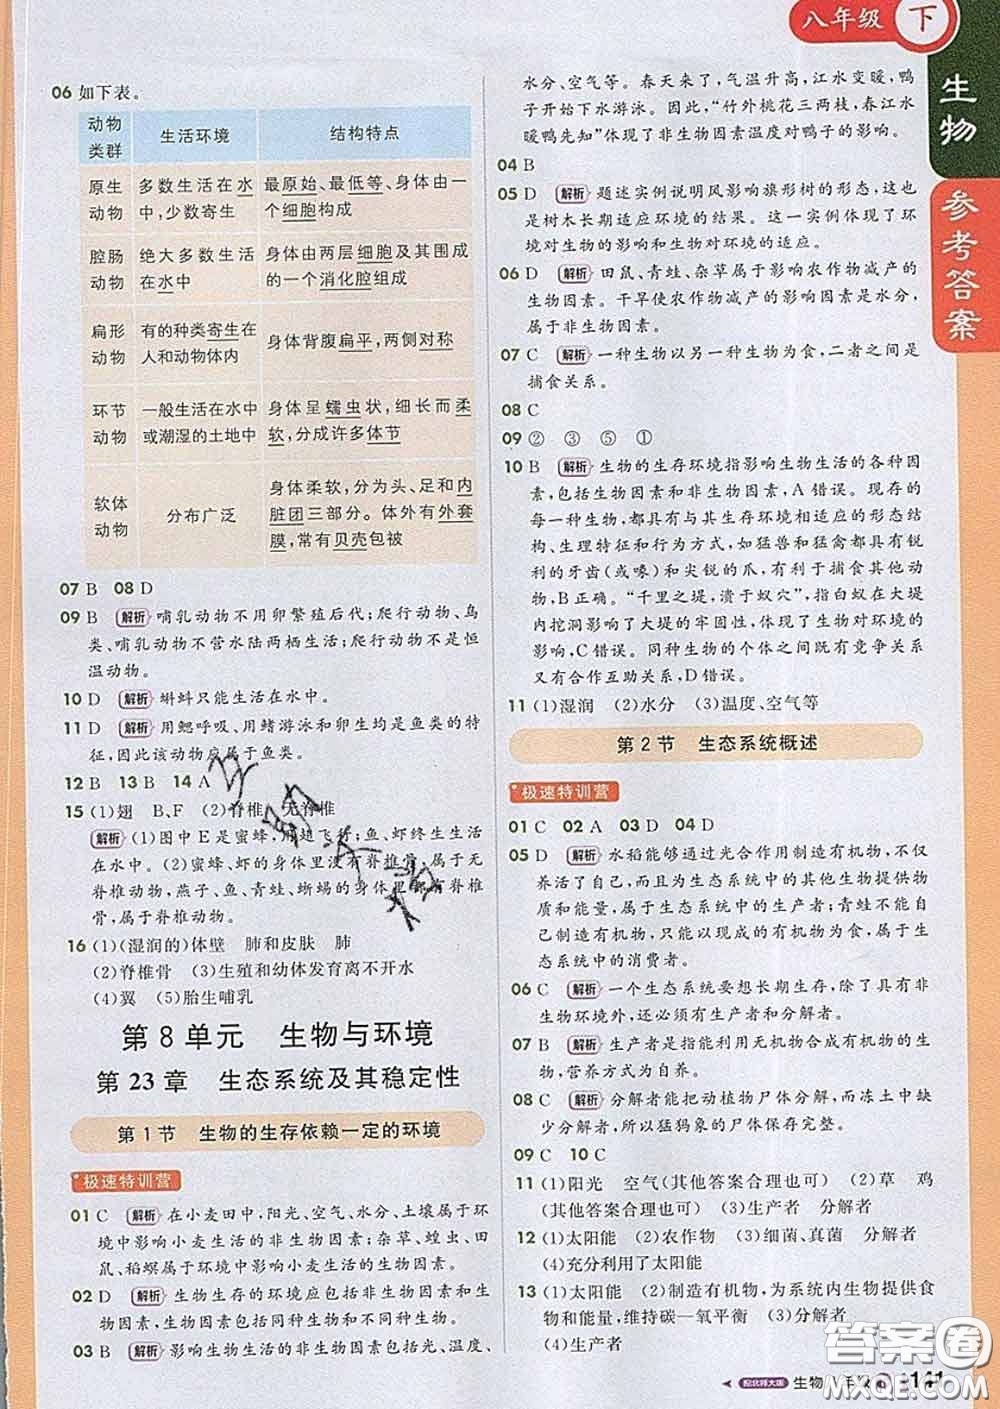 八年级 下
生物
参考答案
06 如下表。
动物类群 生活环境 结构特点
原生 多数生活在水 最原始、最低等、身体由一
动物 中,少数寄生 个细胞构成
腔肠 绝大多数生活 身体由两层细胞及其围成
动物 在水中 的一个消化腔组成
扁形 有的种类寄生在 身体背腹扁平,两侧对称
动物 人和动物体内
环节 一般生活在水中 身体呈蠕虫状,细长而柔
动物 或潮湿的土地中 软,分成许多体节
软体动物 分布广泛 身体柔软,分为头、足和内
脏团三部分。体外有外套
膜,常有贝壳包被
07 B 08 D
09 B 解析 哺乳动物不用卵繁殖后代;爬行动物、鸟
类、哺乳动物不营水陆两栖生活;爬行动物不是恒
温动物。
10 D 解析 蝌蚪只能生活在水中。
11 D 解析 用鳃呼吸、用鳍游泳和卵生均是鱼类的特
征,因此该动物应属于鱼类。
12 B 13 B 14 A
15 (1)翅 B、F (2)脊椎 无脊椎
解析 (1)图中E是蜜蜂,用翅飞行;鱼、虾终生生活
在水中。(2)蜜蜂、虾的身体里没有脊椎骨,属于无
脊椎动物,燕子、鱼、青蛙、蜥蜴的身体里都有脊椎
骨,属于脊椎动物。
16 (1)(湿润的)体壁 肺和皮肤 肺
(2)脊椎骨 (3)生殖和幼体发育离不开水
(4)翼 (5)胎生哺乳
第8单元 生物与环境
第23章 生态系统及其稳定性
第1节 生物的生存依赖一定的环境
极速特训营
01 C 解析 在小麦田中,阳光、空气、水分、土壤属于环
境中影响小麦生活的非生物因素;杂草、蝗虫、田
鼠、稻螟属于环境中影响小麦生活的生物因素。
02 D 解析 生物生存的环境应包括非生物因素和生物
因素,生物因素包括同种生物和不同种生物。
03 B 解析 影响生物生活的非生物因素包括光、温度、
水分、空气等。春天来了,气温升高,江水变暖,鸭
子开始下水游泳。因此,“竹外桃花三两枝,春江水
暖鸭先知”体现了非生物因素温度对鸭子的影响。
04 B
05 D 解析 题述实例说明风影响旗形树的形态,这也
是树木长期适应环境的结果。这一实例体现了环
境对生物的影响和生物对环境的适应。
06 D 解析 田鼠、青蛙、杂草属于影响农作物减产的
生物因素。干旱使农作物减产的影响因素是水分,
属于非生物因素。
07 C 解析 一种生物以另一种生物为食,二者之间是
捕食关系。
08 C
09 ② ③ ⑤ ①
10 B 解析 生物的生存环境指影响生物生活的各种因
素,包括生物因素和非生物因素,A错误。现存的
每一种生物,都具有与其生存环境相适应的形态结
构、生理特征和行为方式,如猛兽和猛禽都具有锐
利的牙齿(或喙)和尖锐的爪,有利于捕食其他动
物,B正确。“千里之堤,溃于蚁穴”,指白蚁在大堤
内挖洞影响了大堤的牢固性,体现了生物对环境的
影响,C错误。同种生物的个体之间既有竞争关系
又有合作互助关系,D错误。
11 (1)湿润 (2)水分 (3)温度、空气等
第2节 生态系统概述
极速特训营
01 C 02 A 03 D 04 D
05 D 解析 水稻能够通过光合作用制造有机物,不仅
养活了自己,而且为生态系统中的其他生物提供物
质和能量,属于生态系统中的生产者;青蛙不能自
己制造有机物,只能以现成的有机物为食,属于生
态系统中的消费者。
06 C 解析 一个生态系统要想长期生存,除了具有非
生物环境外,还必须有生产者和分解者。
07 B 解析 生产者是指能利用无机物合成有机物的生
物,营养方式为自养。
08 C 解析 分解者能把动植物尸体分解,而冻土中缺
少分解者,因此猛犸象的尸体保存完整。
09 C 10 C
11 (1)阳光 空气(其他答案合理也可) (2)草 鸡
(其他答案合理也可) (3)生产者 分解者
12 (1)太阳能 (2)农作物 (3)细菌、真菌 分解者
(4)充分利用了太阳能
13 (1)太阳能 (2)制造有机物,为系统内生物提供食
物和能量,维持碳—氧平衡 (3)分解者
(4)生产者
配北师大版 生物 八年级 141
答案圈
MXQE.COM